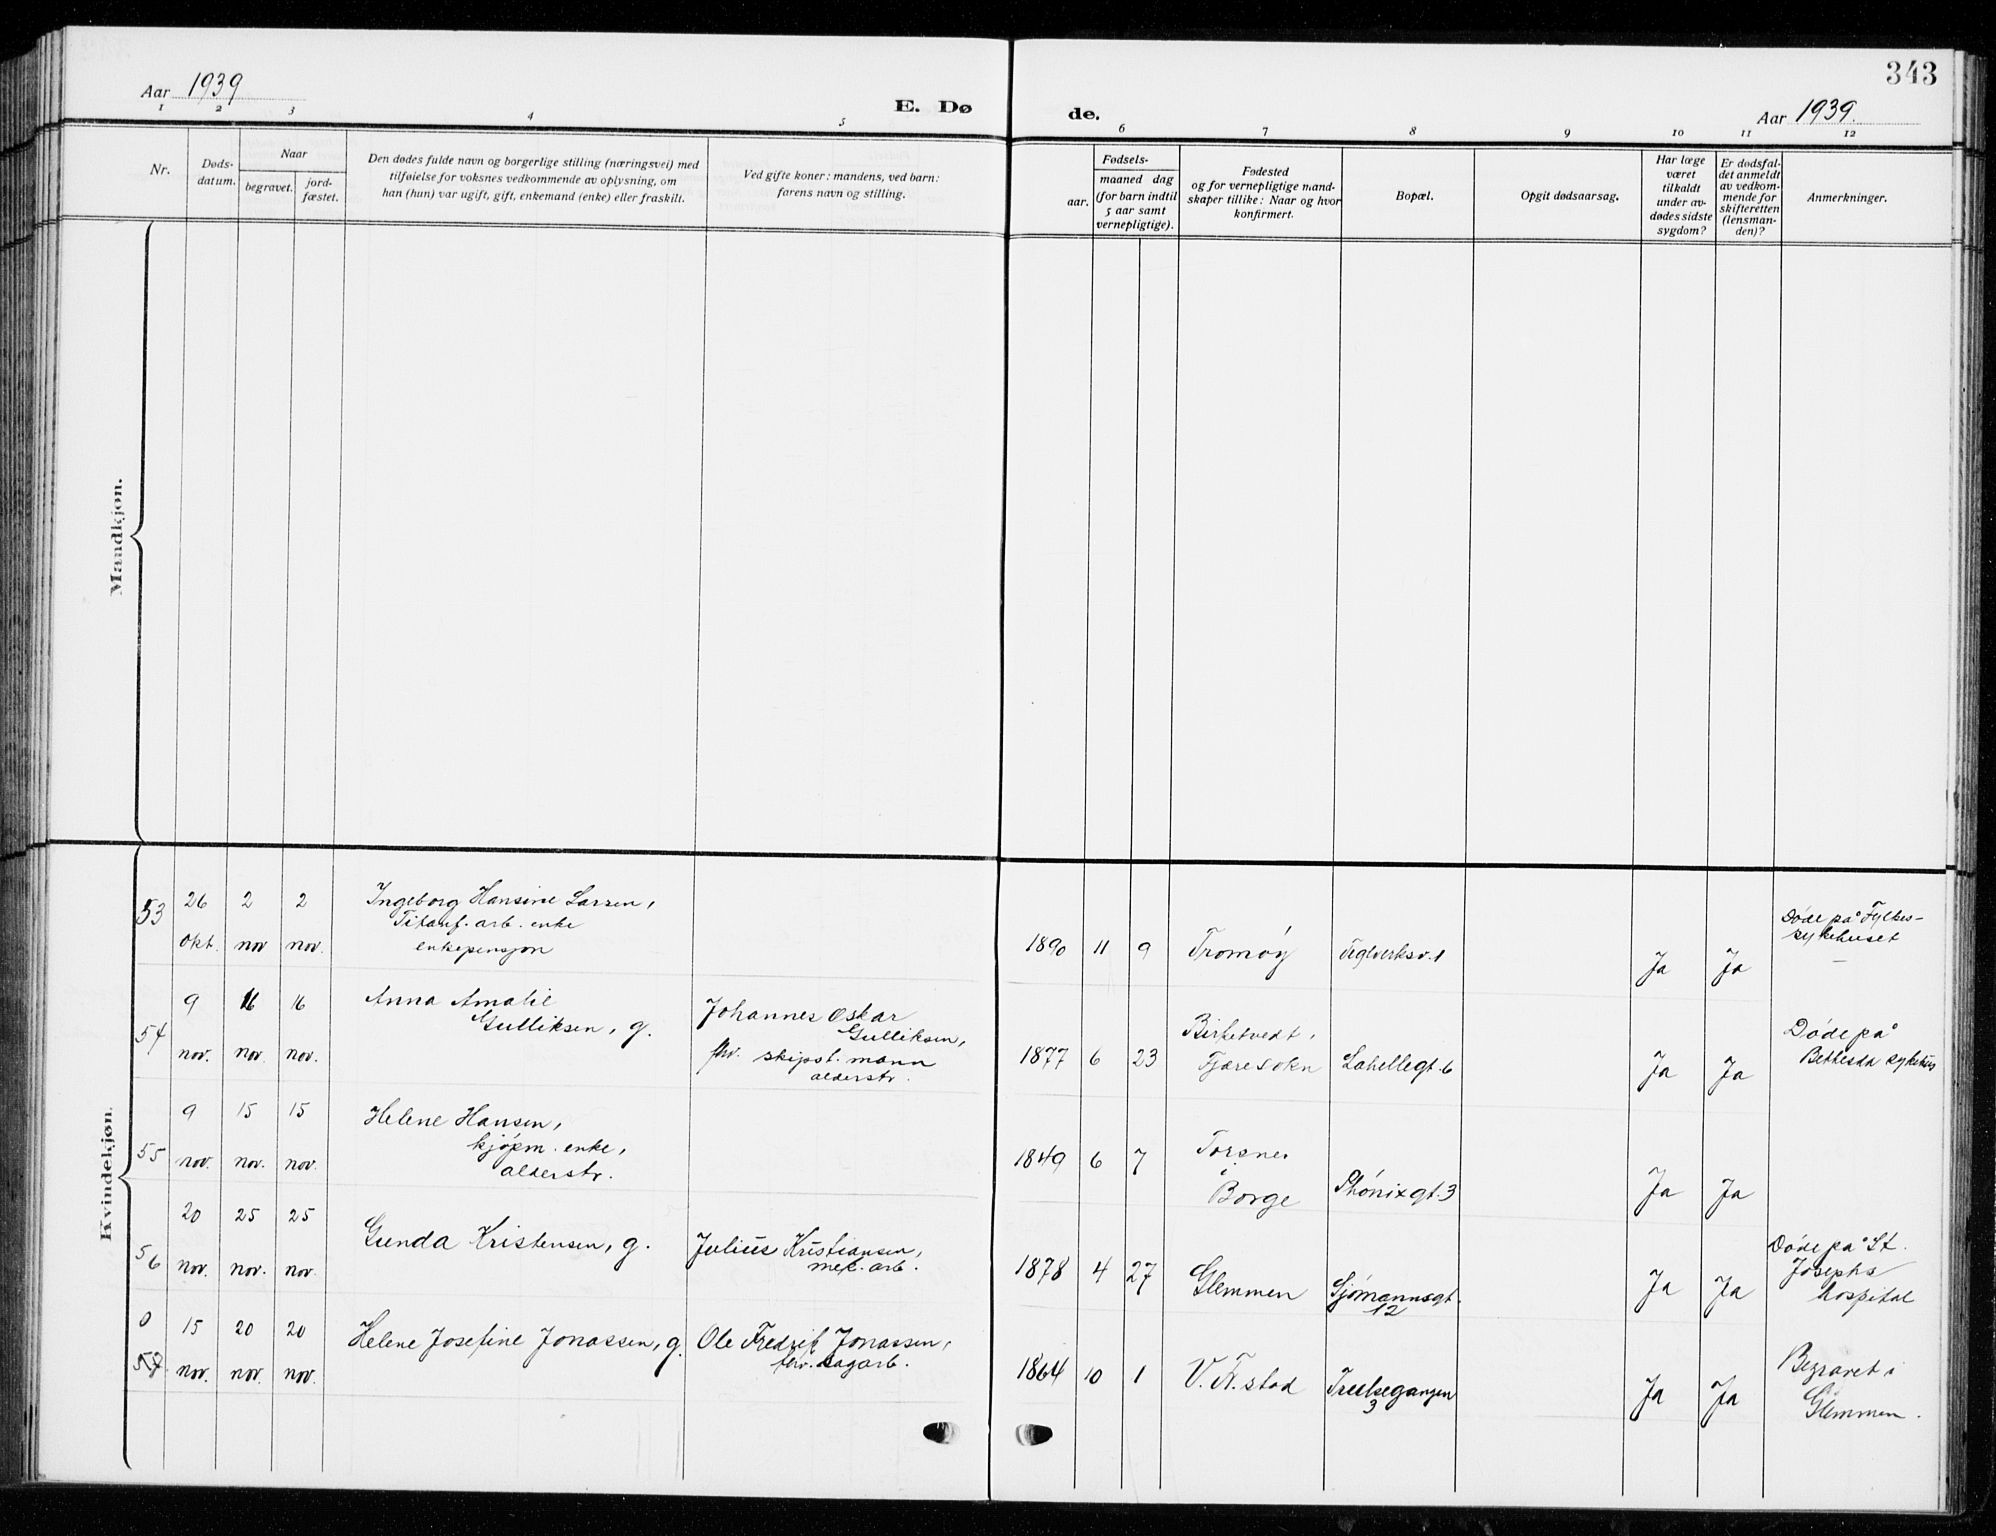 343
Aar 1939
E. Dø
de.
Aar 1939.
1 2 3 4 5 6 7 8 9 10 11 12
Nr.
Døds-
datum.
Naar
begravet.
jord-
fæstet.
Den dødes fulde navn og borgerlige stilling (næringsvei) med
tilføielse for voksnes vedkommende av oplysning, om
han (hun) var ugift, gift, enkemand (enke) eller fraskilt.
Ved gifte koner: mandens, ved barn:
farens navn og stilling.
Fødsels-
aar.
maaned dag
(for barn indtil
5 aar samt
vernepligtige).
Fødested
og for vernepligtige mand-
skaper tillike: Naar og hvor
konfirmert.
Bopæl.
Opgit dødsaarsag.
Har læge
været
tilkaldt
under av-
dødes sidste
sygdom?
Er dødsfal-
det anmeldt
av vedkom-
mende for
skifteretten
(lensman-
den)?
Anmerkninger.
Mandkjøn.
Kvindekjøn.
53
26 okt.
2 nov
2 nov.
Ingeborg Hansine Larsen,
Titanf. arb. enke
enkepensjon
1890 11 9
Tromøy
Teglverksv. 1
Ja
Ja
Døde på Fylkes-
sykehuset
54
9 nov.
16 nov.
16 nov.
Anna Amalie
Gulliksen, g.
Johannes Oskar
Gulliksen,
fhv. skipst. mann
alderstr.
1877 6 23
Birketvedt,
Fjæresokn
Lahellegt. 6
Ja
Ja
Døde på
Bethesda sykehus
55
9 nov.
15 nov.
15 nov.
Helene Hansen,
kjøpm. enke,
alderstr.
1849 6 7
Torsnes
i
Borge
Phønixgt. 3
Ja
Ja
56
20 nov.
25 nov.
25 nov.
Gunda Kristensen, g.
Julius Kristiansen,
mek. arb.
1878 4 27
Glemmen
Sjømannsgt.
12
Ja
Ja
Døde på St.
Josephs
hospital
0
57
15 nov.
20 nov.
20 nov.
Helene Josefine Jonassen, g.
Ole Fredrik Jonassen,
fhv. sagarb.
1864 10 1
V. Fr.stad
3
Ja
Ja
Begravet i
Glemmen.